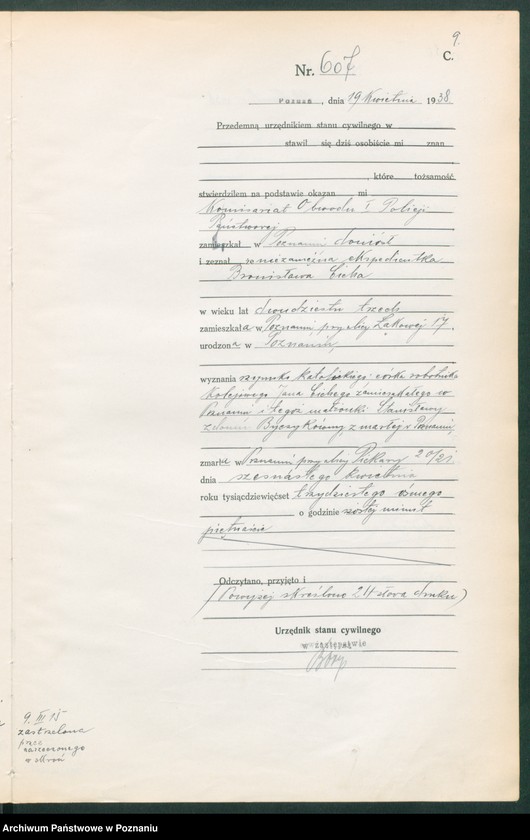 9.
C.
Nr. 607
Poznań, dnia 19 Kwietnia 1938
Przedemną urzędnikiem stanu cywilnego w
stawił się dziś osobiście mi znan
, które tożsamość
stwierdziłem na podstawie okazan mi
Komisariat Obwodu I Policji
Państwowej
zamieszkał w Poznaniu doniósł
i zeznał, że niezamężna ekspedientka
Bronisława Cicha
w wieku lat dwudziestu trzech
zamieszkała w Poznaniu, przy ulicy Łąkowej 17.
urodzona w Poznaniu,
wyznania rzymsko katolickiego córka robotnika
kolejowego Jana Cichego zamieszkałego w
Poznaniu i tegoż małżonki Stanisławy
z domu Byczykówny, zmarłej w Poznaniu,
zmarła w Poznaniu przy ulicy Piekary 20/21
dnia szesnastego kwietnia
roku tysiącdziewięćset trzydziestego ósmego
o godzinie szóstej minut
piętnaście
Odczytano, przyjęto i
(Powyżej skreślono 24 słowa druku)
Urzędnik stanu cywilnego
w zastępstwie
9. III 15
zastrzelona
przez
narzeczonego
Archiwum Państwowe w Poznaniu